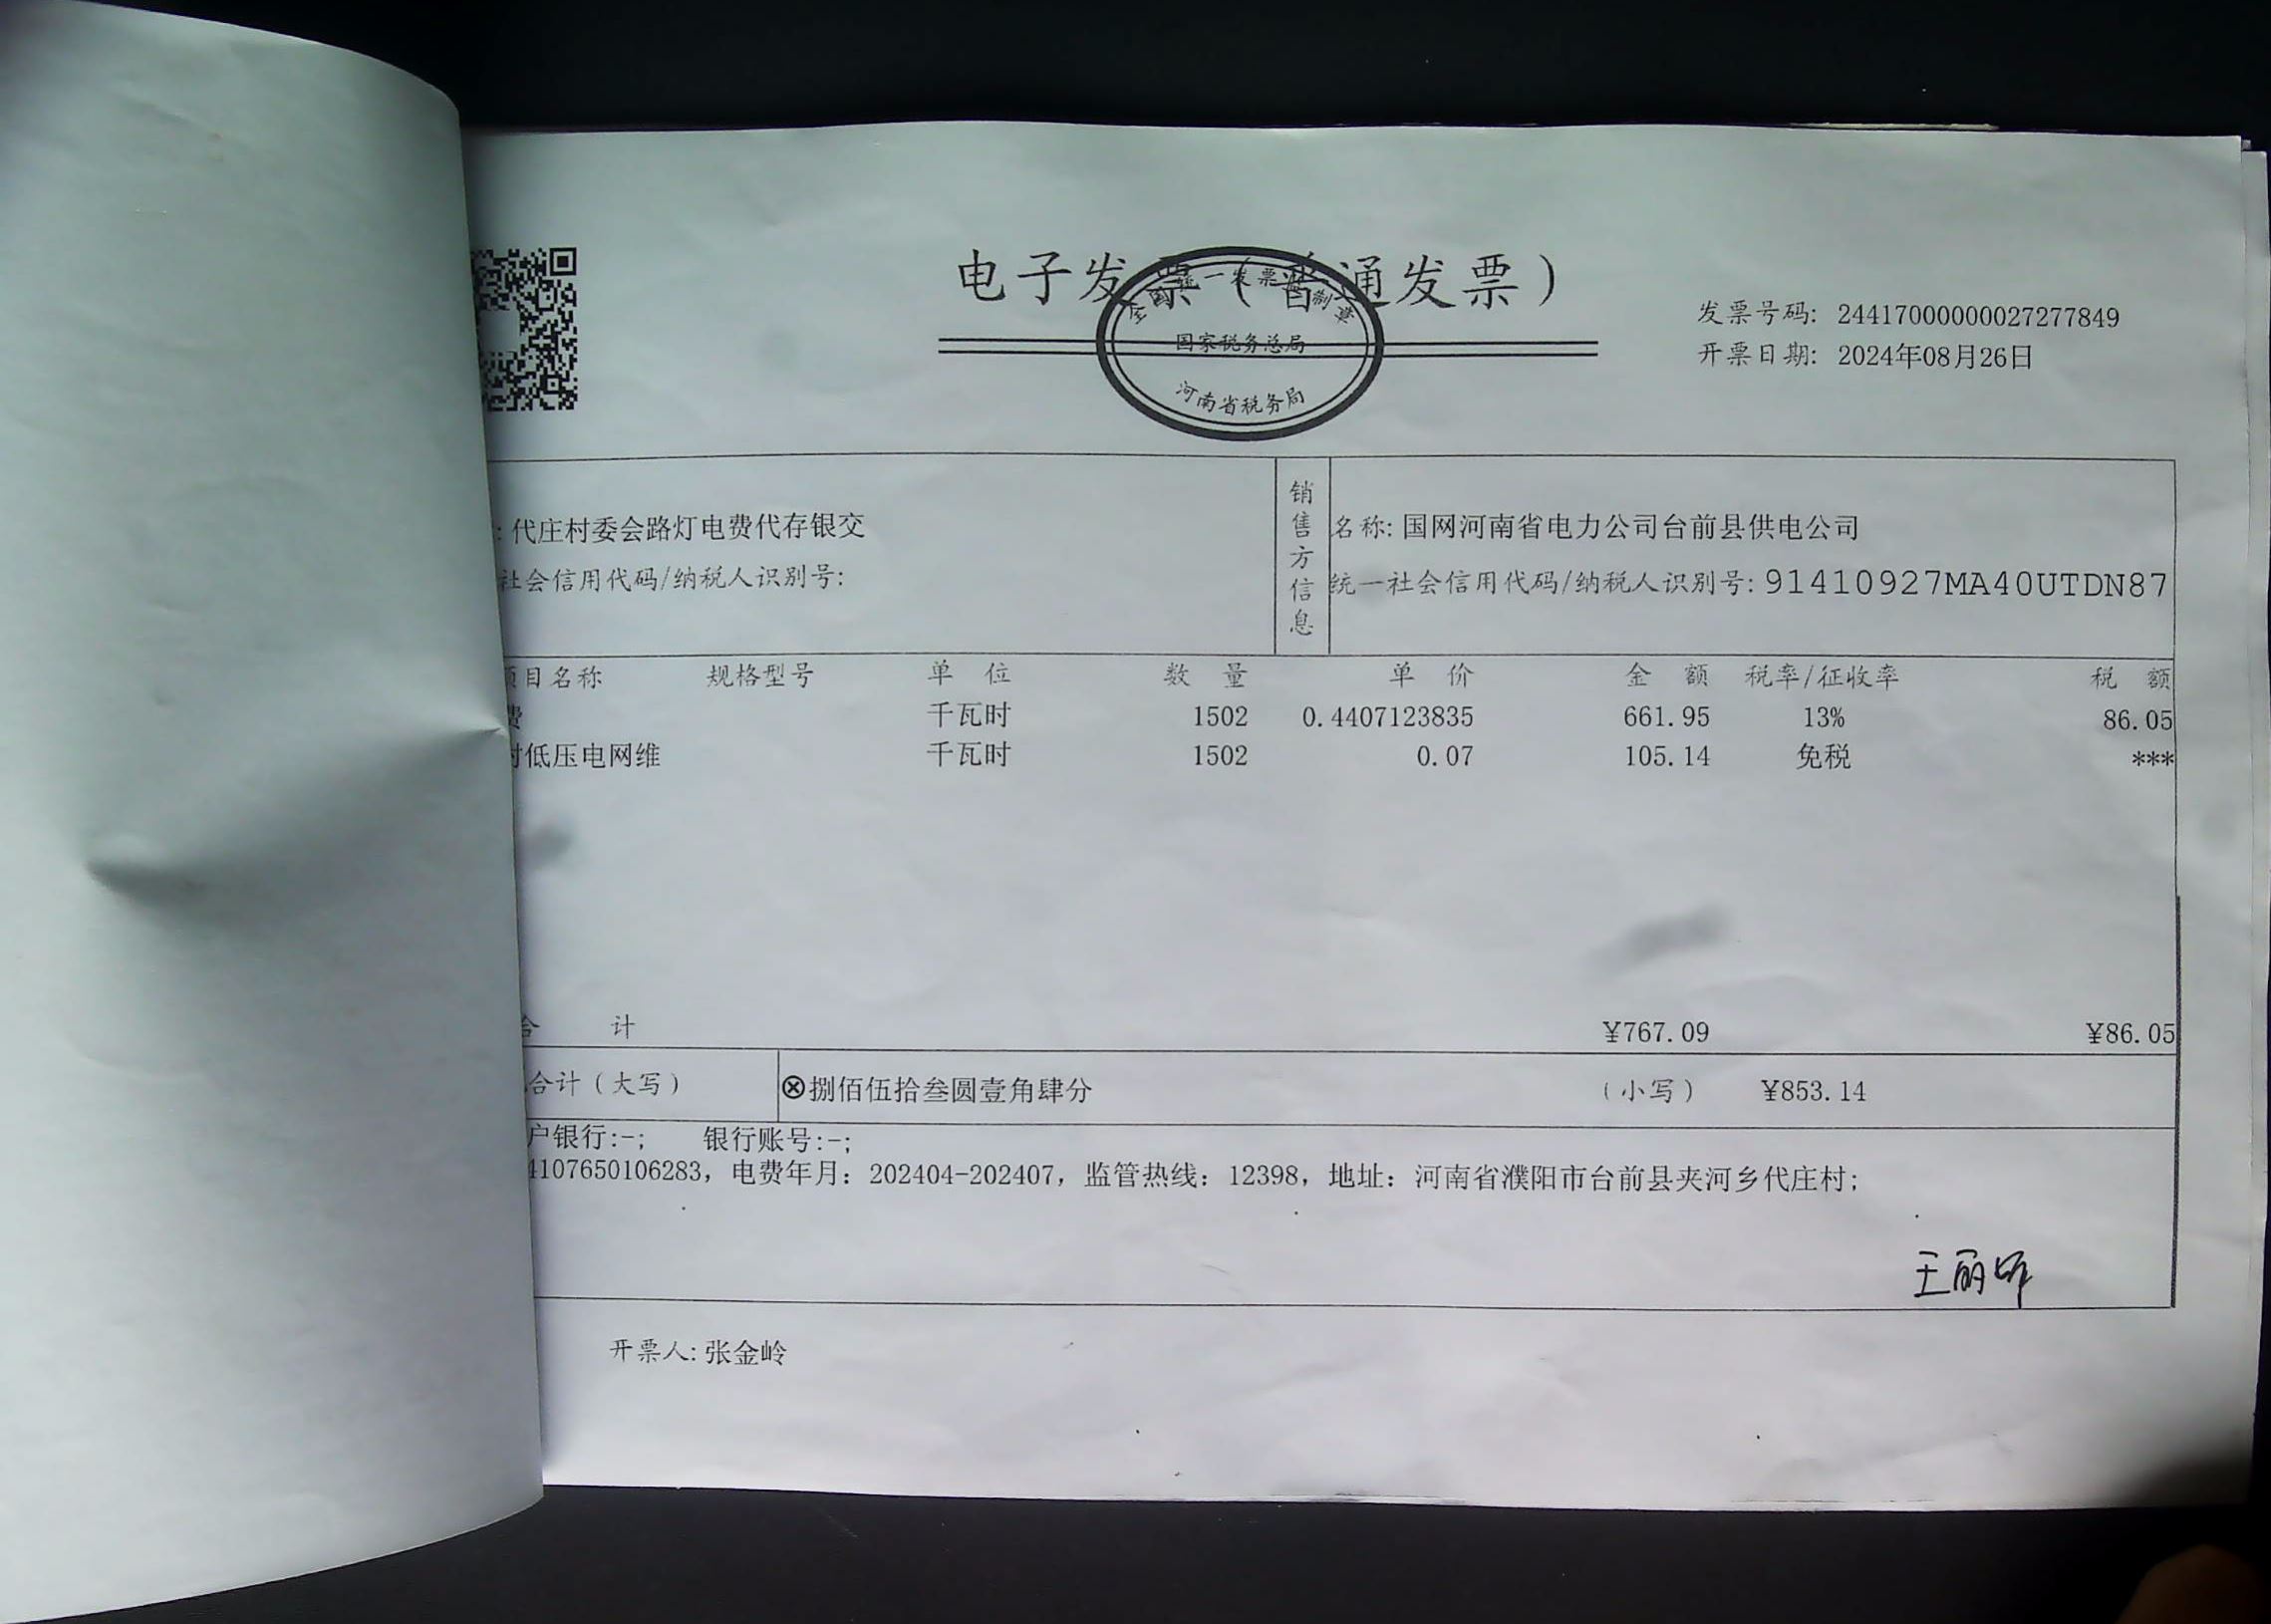 电子发票（普通发票）
全国统一发票监制章
国家税务总局
河南省税务局
发票号码: 24417000000027277849
开票日期: 2024年08月26日
: 代庄村委会路灯电费代存银交
社会信用代码/纳税人识别号:
销售方信息
名称: 国网河南省电力公司台前县供电公司
统一社会信用代码/纳税人识别号: 91410927MA40UTDN87
项目名称 规格型号 单 位 数 量 单 价 金 额 税率/征收率 税 额
费 千瓦时 1502 0.4407123835 661.95 13% 86.05
村低压电网维 千瓦时 1502 0.07 105.14 免税 ***
合 计 ¥767.09 ¥86.05
合计（大写） ⊗捌佰伍拾叁圆壹角肆分 （小写） ¥853.14
户银行:-; 银行账号:-;
4107650106283, 电费年月: 202404-202407, 监管热线: 12398, 地址: 河南省濮阳市台前县夹河乡代庄村;
王丽
开票人: 张金岭